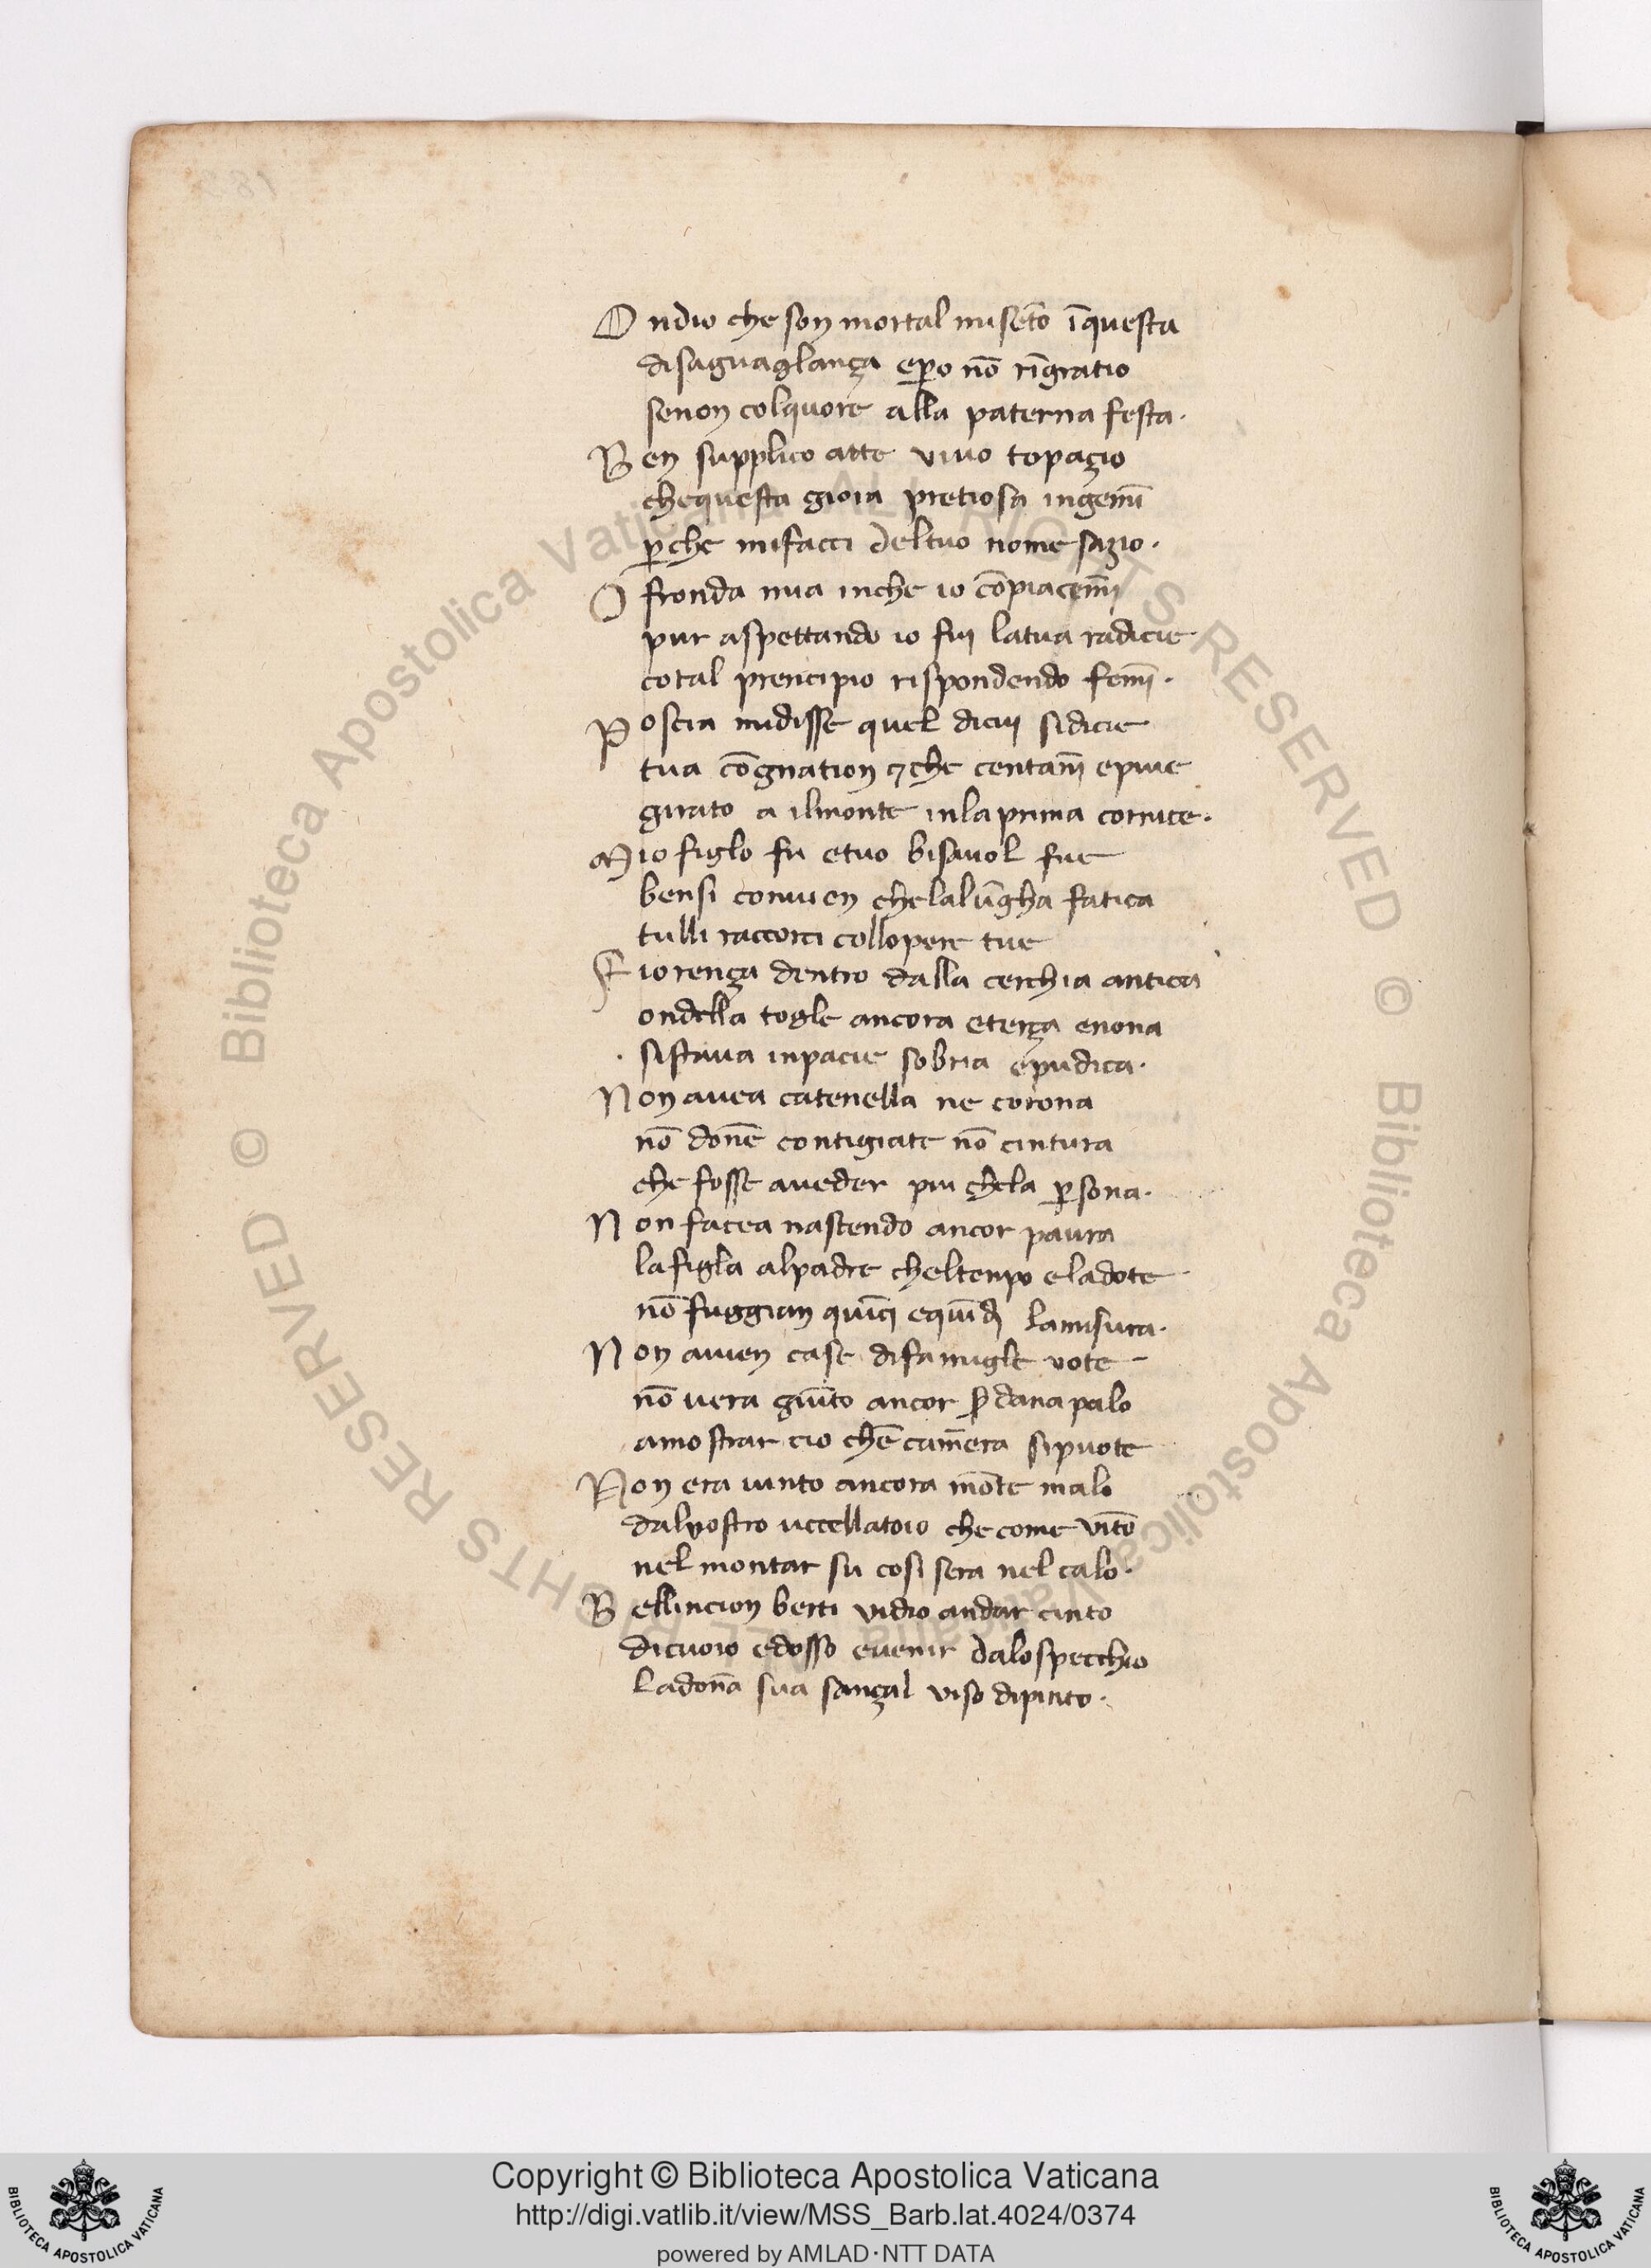 O ndio che son mortal misēto īquesta
disaguaglança ep̱o nō rīgratio
senon colquore alla paterna festa.
B en supplico atte vivo topaçio
chequesta gioia pretiosa ingēmi
p̱che mifacci deltuo nome sazio.
O fronda mia inche io cōpiacēmi
pur aspettando io fui latua radicie
cotal prencipio rispondendo fēmi.
P oscia midisse quel dicui sidicie
tua cōgnation ⁊che centāni epiue
girato a ilmonte inlaprima cornice.
M io figlo fu etuo bisavol fue
bensi convien chelalūgha fatica
tulli raccorci collopere tue
F iorença dentro dalla cerchia antica
ondella togle ancora eterça enona
. sistava inpacie sobria epudica.
N on avea catenella ne corona
nō dōne contigiate nō cintura
che fosse aveder piu chela p̱sona.
N on facea nascendo ancor paura
lafigla alpadre cheltenpo eladote
nō fuggian quīci equīdi lamisura.
N on avien case difamigle vote
nō vera giūto ancor s̄danapalo
amostrar cio chē camēra sipuote
N on era vinto ancora mōte malo
dalvostro uccellatoio che come vīto
nel montar su cosi sera nel calo.
B ellincion berti vidio andar cinto
dicuoio edosso evenir dalospecchio
ladōna sua sançal viso dipinto.
Copyright © Biblioteca Apostolica Vaticana
http://digi.vatlib.it/view/MSS_Barb.lat.4024/0374
powered by AMLAD·NTT DATA
BIBLIOTECA APOSTOLICA VATICANA
BIBLIOTECA APOSTOLICA VATICANA
© Biblioteca Apostolica Vaticana ALL RIGHTS RESERVED © Biblioteca Apostolica Vaticana ALL RIGHTS RESERVED